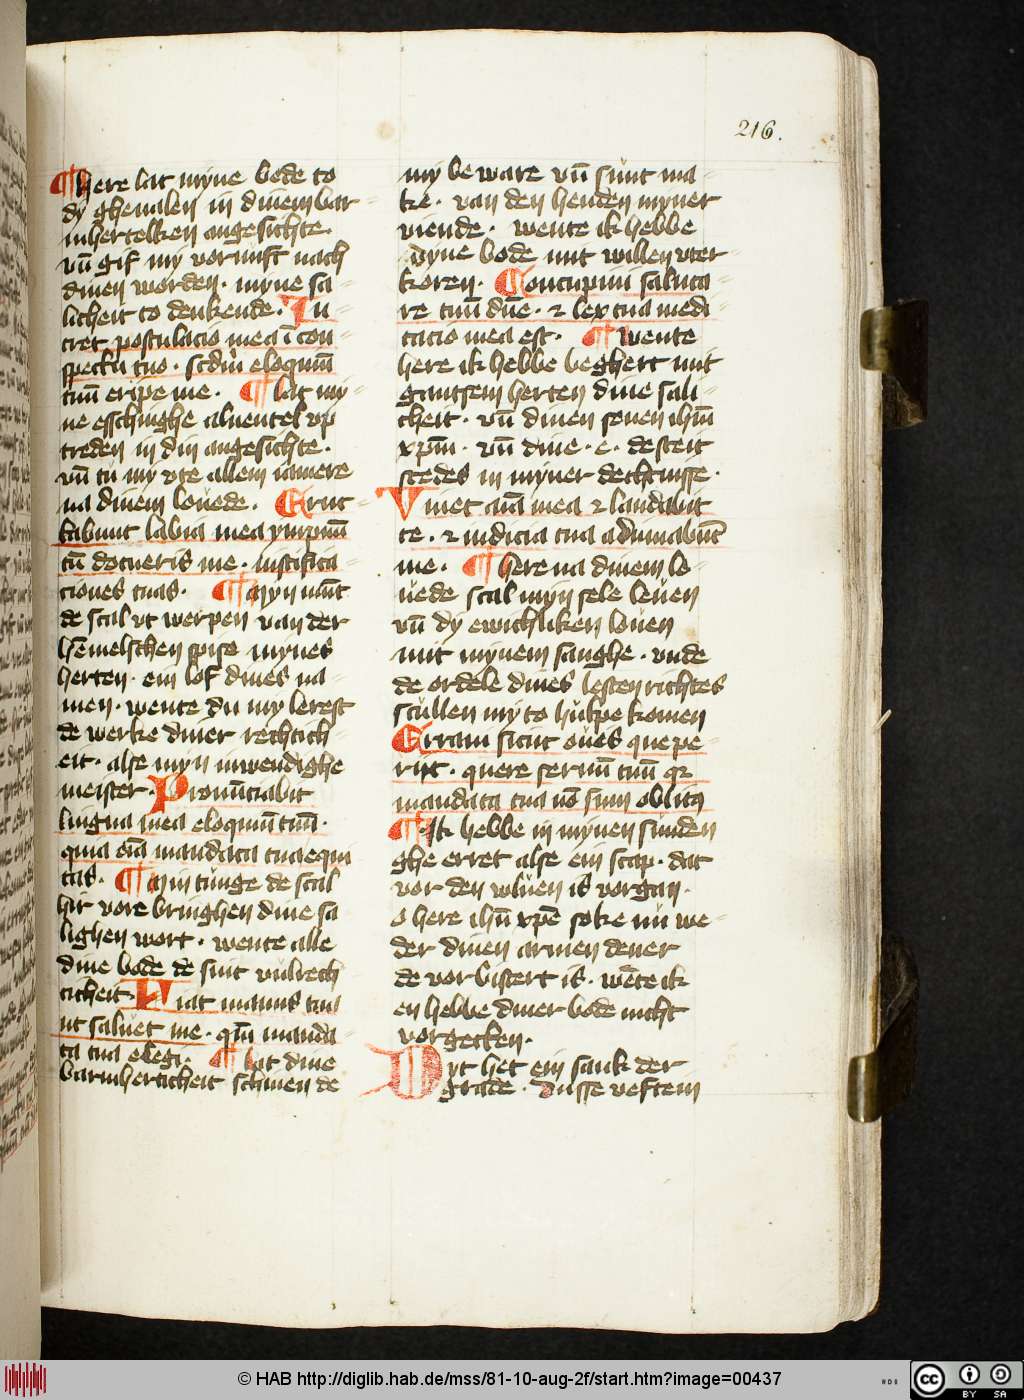 216.
¶ here lat myne bede to
dy ghenalen in dinem bar-
mhertelken angesichte.
vn̄ gif my vornuft nach
dinen worden. myne sa-
licheit to denkende. In-
tret postulacio mea ī con-
spectu tuo. scdm̄ eloquiū
tuū eripe me. ¶ lat my-
ne esschinghe aluentel vp
treden in din angesichte.
vn̄ tu my vte allem iamere
na dinem louede. Eruc-
tabunt labia mea ympnū
cū docueris me. iustifica-
ciones tuas. ¶ Myn mūt
de scal vt werpen van der
hemelschen spise mynes
herten. ein lof dines na-
men. wente du my lerest
de werke diner rechtich-
eit. alse myn inwendighe
meister. Pronūciabit
lingua mea eloquiū tuū.
quia oīa mandata tua equi
tas. ¶ Myn tunge de scal
hir vore bringhen dine sa
lighen wort. wente alle
dine bode de sint vulrech
ticheit. Fiat manus tua
ut saluet me. qm̄ manda-
ta tua elegi. ¶ lat dine
barmherticheit schinen de
my beware vn̄ sunt ma-
ke. van den henden myner
viende. wente ik hebbe
dyne bode mit willen vter-
koren. Concupiui saluta-
re tuū dn̄e. & lex tua medi-
tacio mea est. ¶ Wente
here ik hebbe beghert mit
gantsem herten dine sali-
cheit. vn̄ dinen sonen ihm̄
xpm̄. vn̄ dine .e. de steit
stedes in myner dechtnisse.
Viuet aīa mea & laudabit
te. & iudicia tua adiuuabūt
me. ¶ here na dinem lo-
uede scal myn sele leuen
vn̄ dy ewichliken louen
mit mynem sanghe. vnde
de ordele dines lesten richtes
scullen my to hulpe komen
Erraui sicut oues que pe-
riit. quere seruū tuū qr
mandata tua nō sum oblitꝰ
¶ Ik hebbe in mynen sunden
ghe erret alse ein scap. dat
vor den wluen is vorgan.
o here ihū xpē soke nu we-
der dinen armen dener
de vorbistert is. wēte ik
en hebbe diner bode nicht
vorgeten.
Dyt het ein sank der
grade. Dusse veftein
© HAB http://diglib.hab.de/mss/81-10-aug-2f/start.htm?image=00437
HAB
cc BY SA